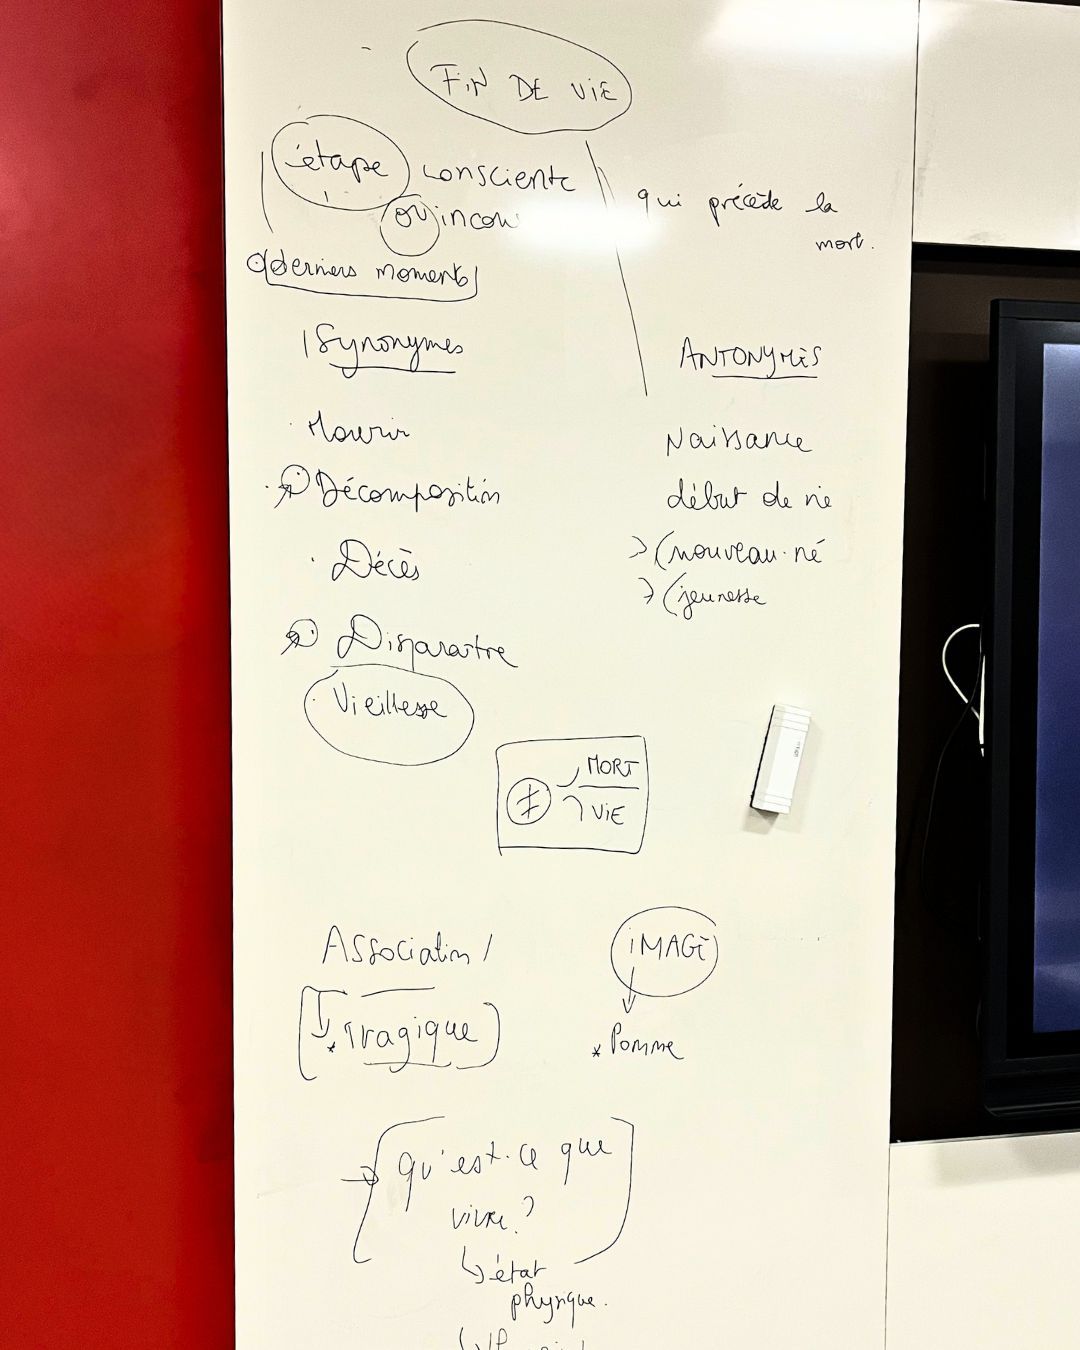 FIN DE VIE
étape consciente
ou incon
qui précède la
mort.
derniers moments
Synonymes
ANTONYMES
Mourir
Naissance
Décomposition
début de vie
Décès
nouveau-né
jeunesse
Disparaitre
Vieillesse
≠ MORT
VIE
Association
IMAGE
* Tragique
* Pomme
qu'est-ce que
vivre ?
état
physique.